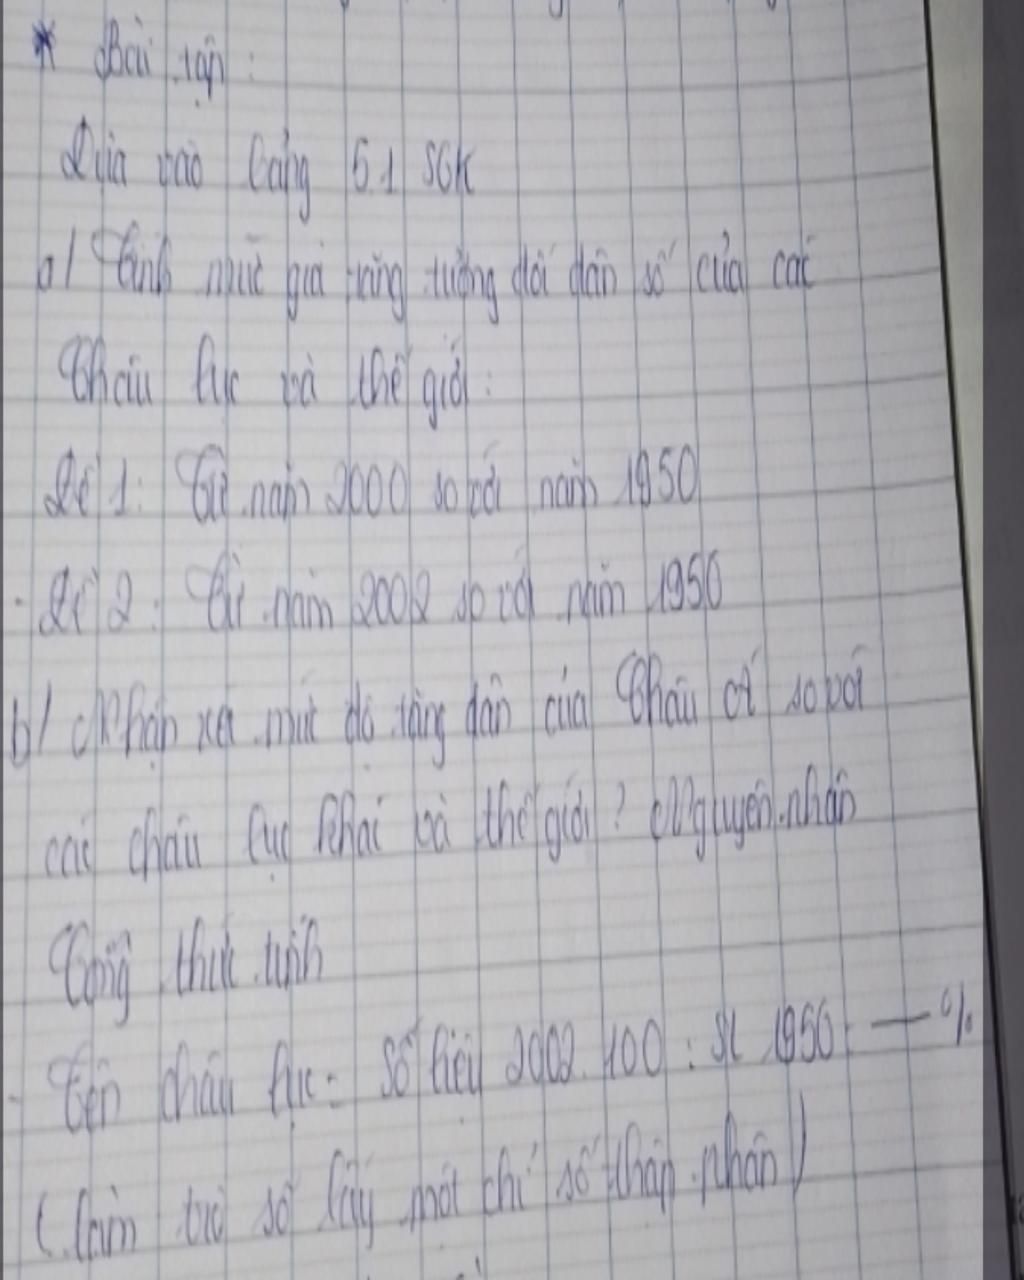 * Bài tập:
Dựa vào bảng 5.1 SGK
a/ Tính mức gia tăng tương đối dân số của các
Châu lục và thế giới:
Đề 1: Từ năm 2000 so với năm 1950
- Đề 2: Từ năm 2002 so với năm 1950
b/ Nhận xét mức độ tăng dân của Châu Á so với
các châu lục khác và thế giới? Nguyên nhân
Công thức tính
- Tên châu lục = Số liệu 2002. 100 : SL 1950 — %
(Làm tròn số lấy một chữ số thập phân)